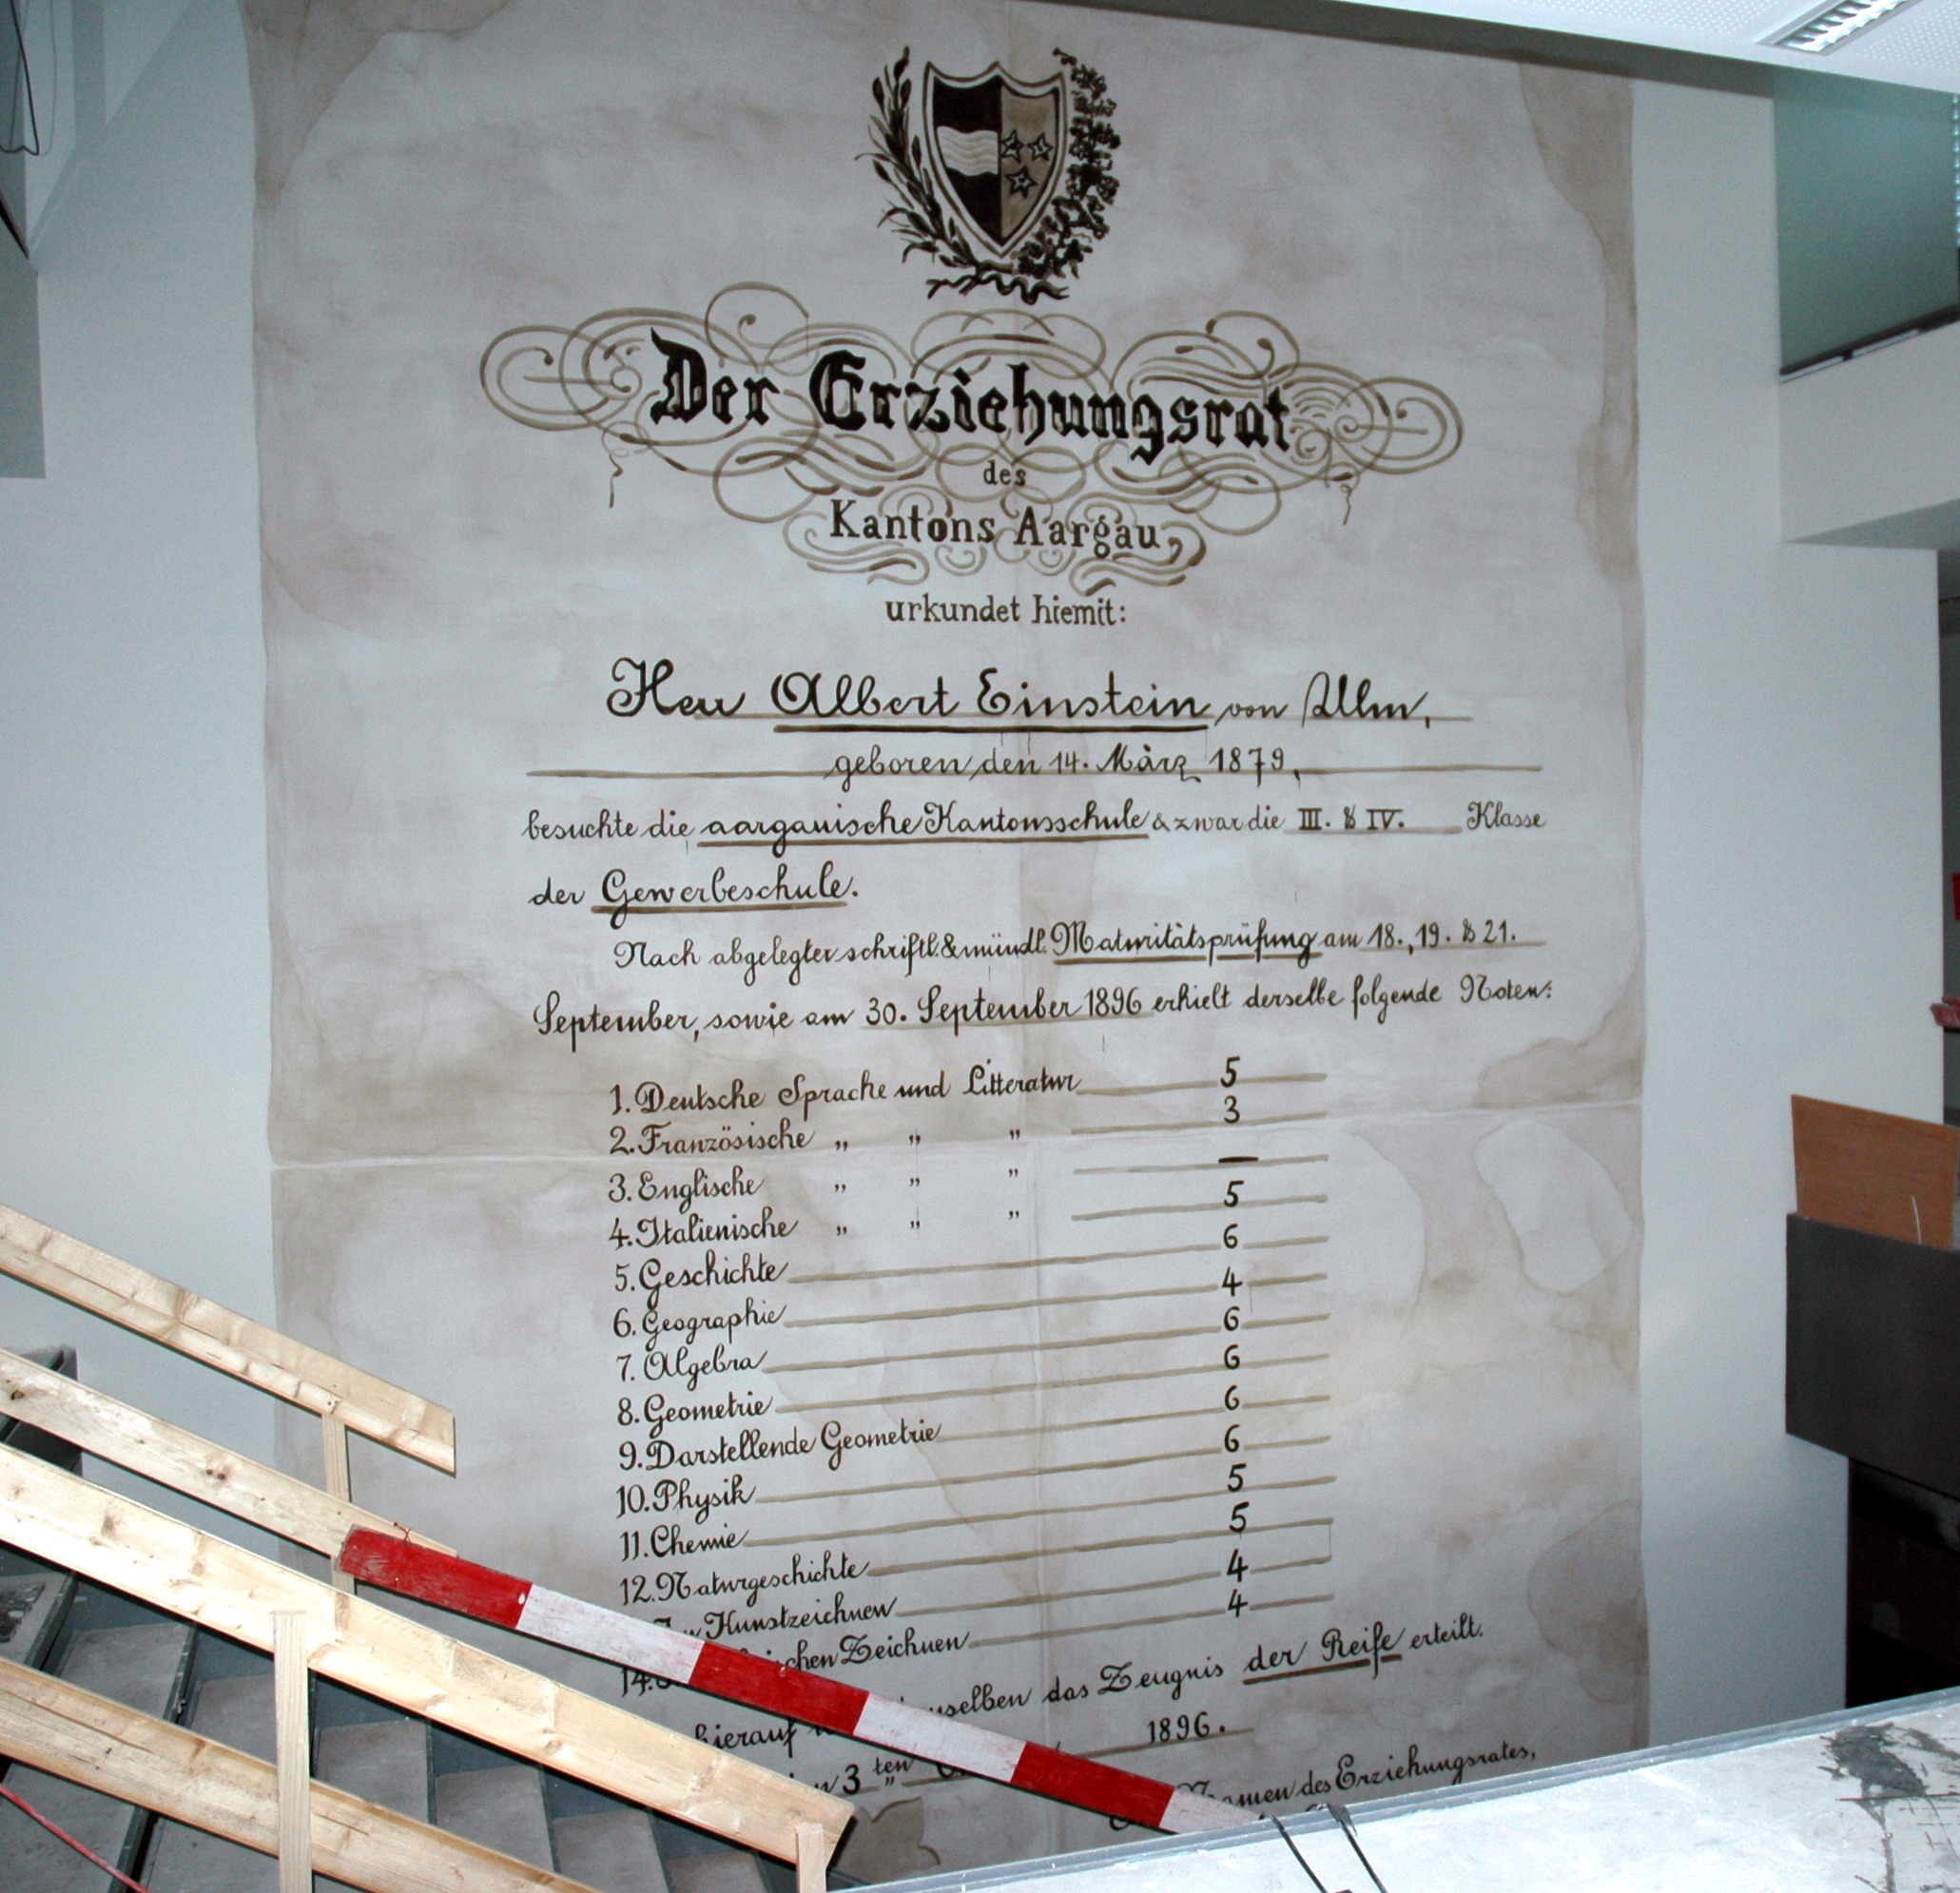 Der Erziehungsrat
des
Kantons Aargau,
urkundet hiemit:
Herr Albert Einstein von Ulm,
geboren den 14. März 1879,
besuchte die aargauische Kantonsschule & zwar die III. & IV. Klasse
der Gewerbeschule.
Nach abgelegter schriftl. & mündl. Maturitätsprüfung am 18., 19. & 21.
September, sowie am 30. September 1896 erhielt derselbe folgende Noten:
1. Deutsche Sprache und Litteratur 5
2. Französische „ „ „ 3
3. Englische „ „ „ —
4. Italienische „ „ „ 5
5. Geschichte 6
6. Geographie 4
7. Algebra 6
8. Geometrie 6
9. Darstellende Geometrie 6
10. Physik 6
11. Chemie 5
12. Naturgeschichte 5
Kunstzeichnen 4
14. Zeichnen 4
hierauf das Zeugnis der Reife erteilt.
3ten 1896.
des Erziehungsrates,